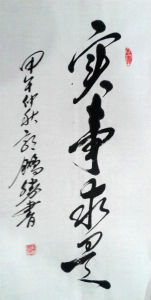 实事求是
甲午仲秋 鹏腾书